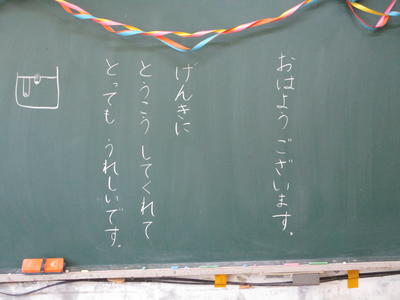 おはようございます。
げんきに
とうこうしてくれて
とっても うれしいです。